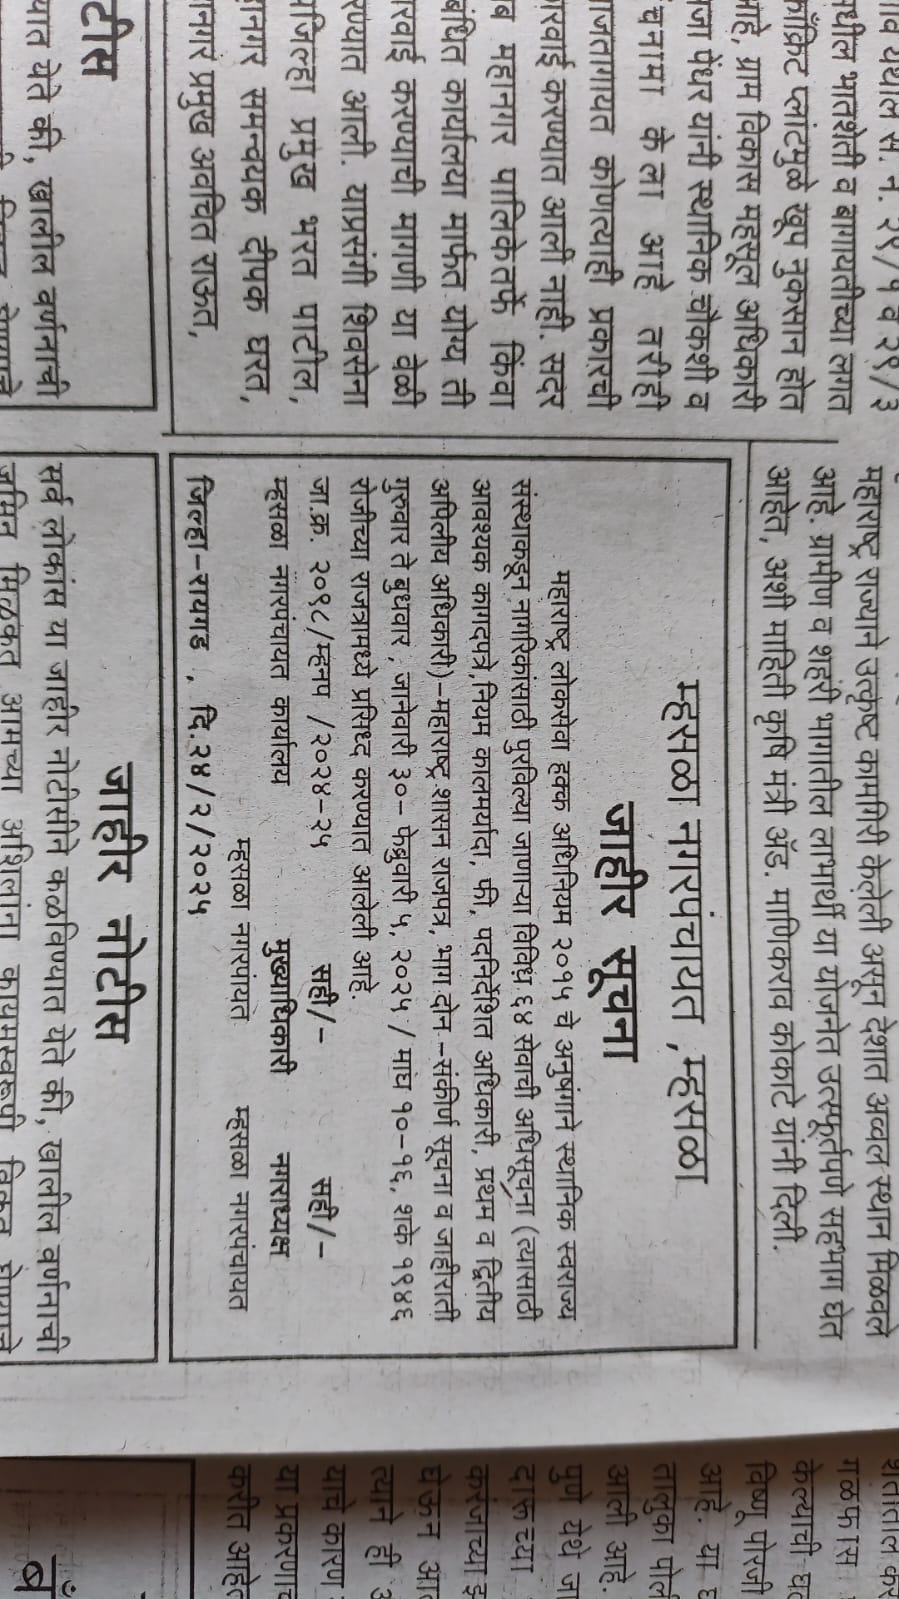 गाव येथील स. न. २१/१ व २१/३
मधील भातशेती व बागायतीच्या लगत
काँक्रिट प्लांटमुळे खूप नुकसान होत
आहे, ग्राम विकास महसूल अधिकारी
पेंधर यांनी स्थानिक चौकशी व
पंचनामा केला आहे तरीही
आजतागायत कोणत्याही प्रकारची
कारवाई करण्यात आली नाही. सदर
महानगर पालिकेतर्फे किंवा
संबंधित कार्यालया मार्फत योग्य ती
कारवाई करण्याची मागणी या वेळी
करण्यात आली. याप्रसंगी शिवसेना
उपजिल्हा प्रमुख भरत पाटील,
महानगर समन्वयक दीपक घरत,
महानगर प्रमुख अवचित राऊत,
टीस
यात येते की, खालील वर्णनाची
महाराष्ट्र राज्याने उत्कृष्ट कामगिरी केलेली असून देशात अव्वल स्थान मिळवले
आहे. ग्रामीण व शहरी भागातील लाभार्थी या योजनेत उत्स्फूर्तपणे सहभाग घेत
आहेत, अशी माहिती कृषि मंत्री ॲड. माणिकराव कोकाटे यांनी दिली.
म्हसळा नगरपंचायत ,म्हसळा
जाहीर सूचना
महाराष्ट्र लोकसेवा हक्क अधिनियम २०१५ चे अनुषंगाने स्थानिक स्वराज्य
संस्थाकडून नागरिकांसाठी पुरविल्या जाणाऱ्या विविध ६४ सेवाची अधिसूचना (त्यासाठी
आवश्यक कागदपत्रे,नियम कालमर्यादा, फी, पदनिर्देशित अधिकारी, प्रथम व द्वितीय
अपिलीय अधिकारी)-महाराष्ट्र शासन राजपत्र, भाग दोन -संकीर्ण सूचना व जाहीराती
गुरुवार ते बुधवार , जानेवारी ३०- फेब्रुवारी ५, २०२५ / माघ १०-१६, शके १९४६
रोजीच्या राजत्रामध्ये प्रसिध्द करण्यात आलेली आहे.
जा.क्र. २०९८/म्हनप /२०२४-२५ सही/- सही/-
म्हसळा नगरपंचायत कार्यालय मुख्याधिकारी नगराध्यक्ष
म्हसळा नगरपंचायत म्हसळा नगरपंचायत
जिल्हा-रायगड , दि.२४/२/२०२५
जाहीर नोटीस
सर्व लोकांस या जाहीर नोटीसीने कळविण्यात येते की, खालील वर्णनाची
जमिन मिळकत आमच्या अशिलांना कायमस्वरूपी विकत घेण्याचे
शेतातील कर
गळफास
केल्याची घट
विष्णू पोरजी
आहे. या घ
तालुका पोली
आली आहे.
पुणे येथे जा
दारूच्या
कारंजाच्या झ
घेऊन आ
त्याने ही
याचे कारण
या प्रकरणाच
करीत आहेत